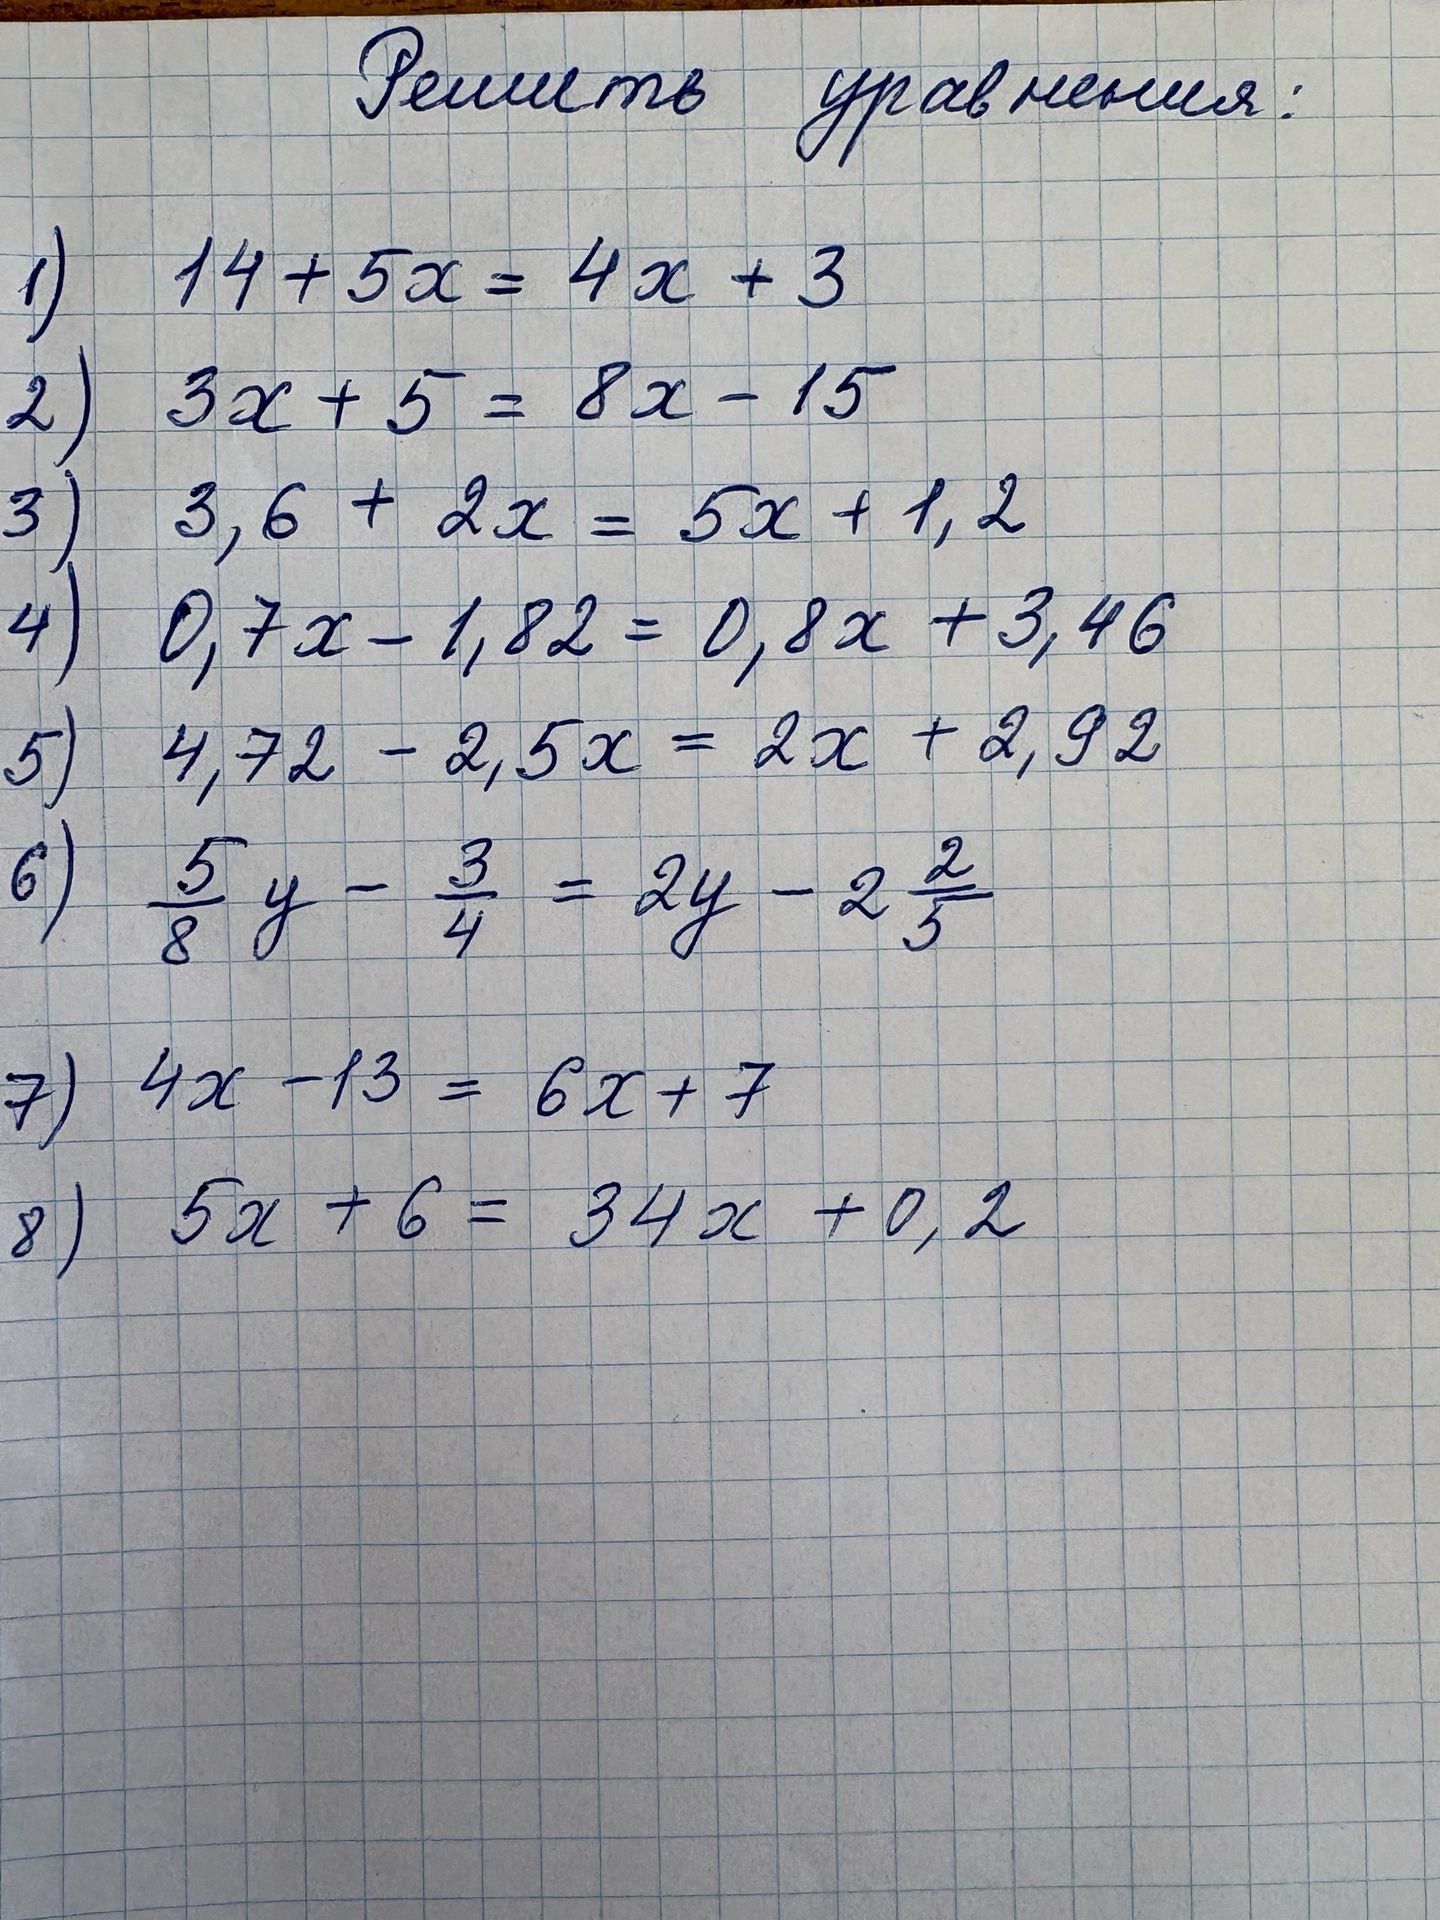 Решить уравнения:
1) 14 + 5x = 4x + 3
2) 3x + 5 = 8x - 15
3) 3,6 + 2x = 5x + 1,2
4) 0,7x - 1,82 = 0,8x + 3,46
5) 4,72 - 2,5x = 2x + 2,92
6) 5/8 y - 3/4 = 2y - 2 2/5
7) 4x - 13 = 6x + 7
8) 5x + 6 = 34x + 0,2